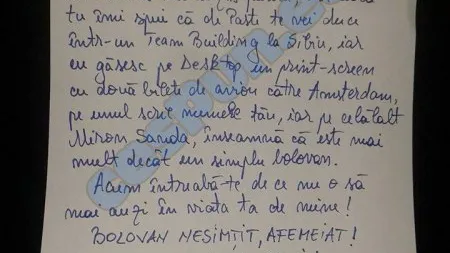 tu îmi spui că de Paști te vei duce
într-un Team Building la Sibiu, iar
eu găsesc pe Desktop un print-screen
cu două bilete de avion către Amsterdam,
pe unul scrie numele tău, iar pe celălalt
Miron Sanda, înseamnă că este mai
mult decât un simplu bolovan.
Acum întreabă-te de ce nu o să
mai auzi în viața ta de mine!
BOLOVAN NESIMȚIT, AFEMEIAT!